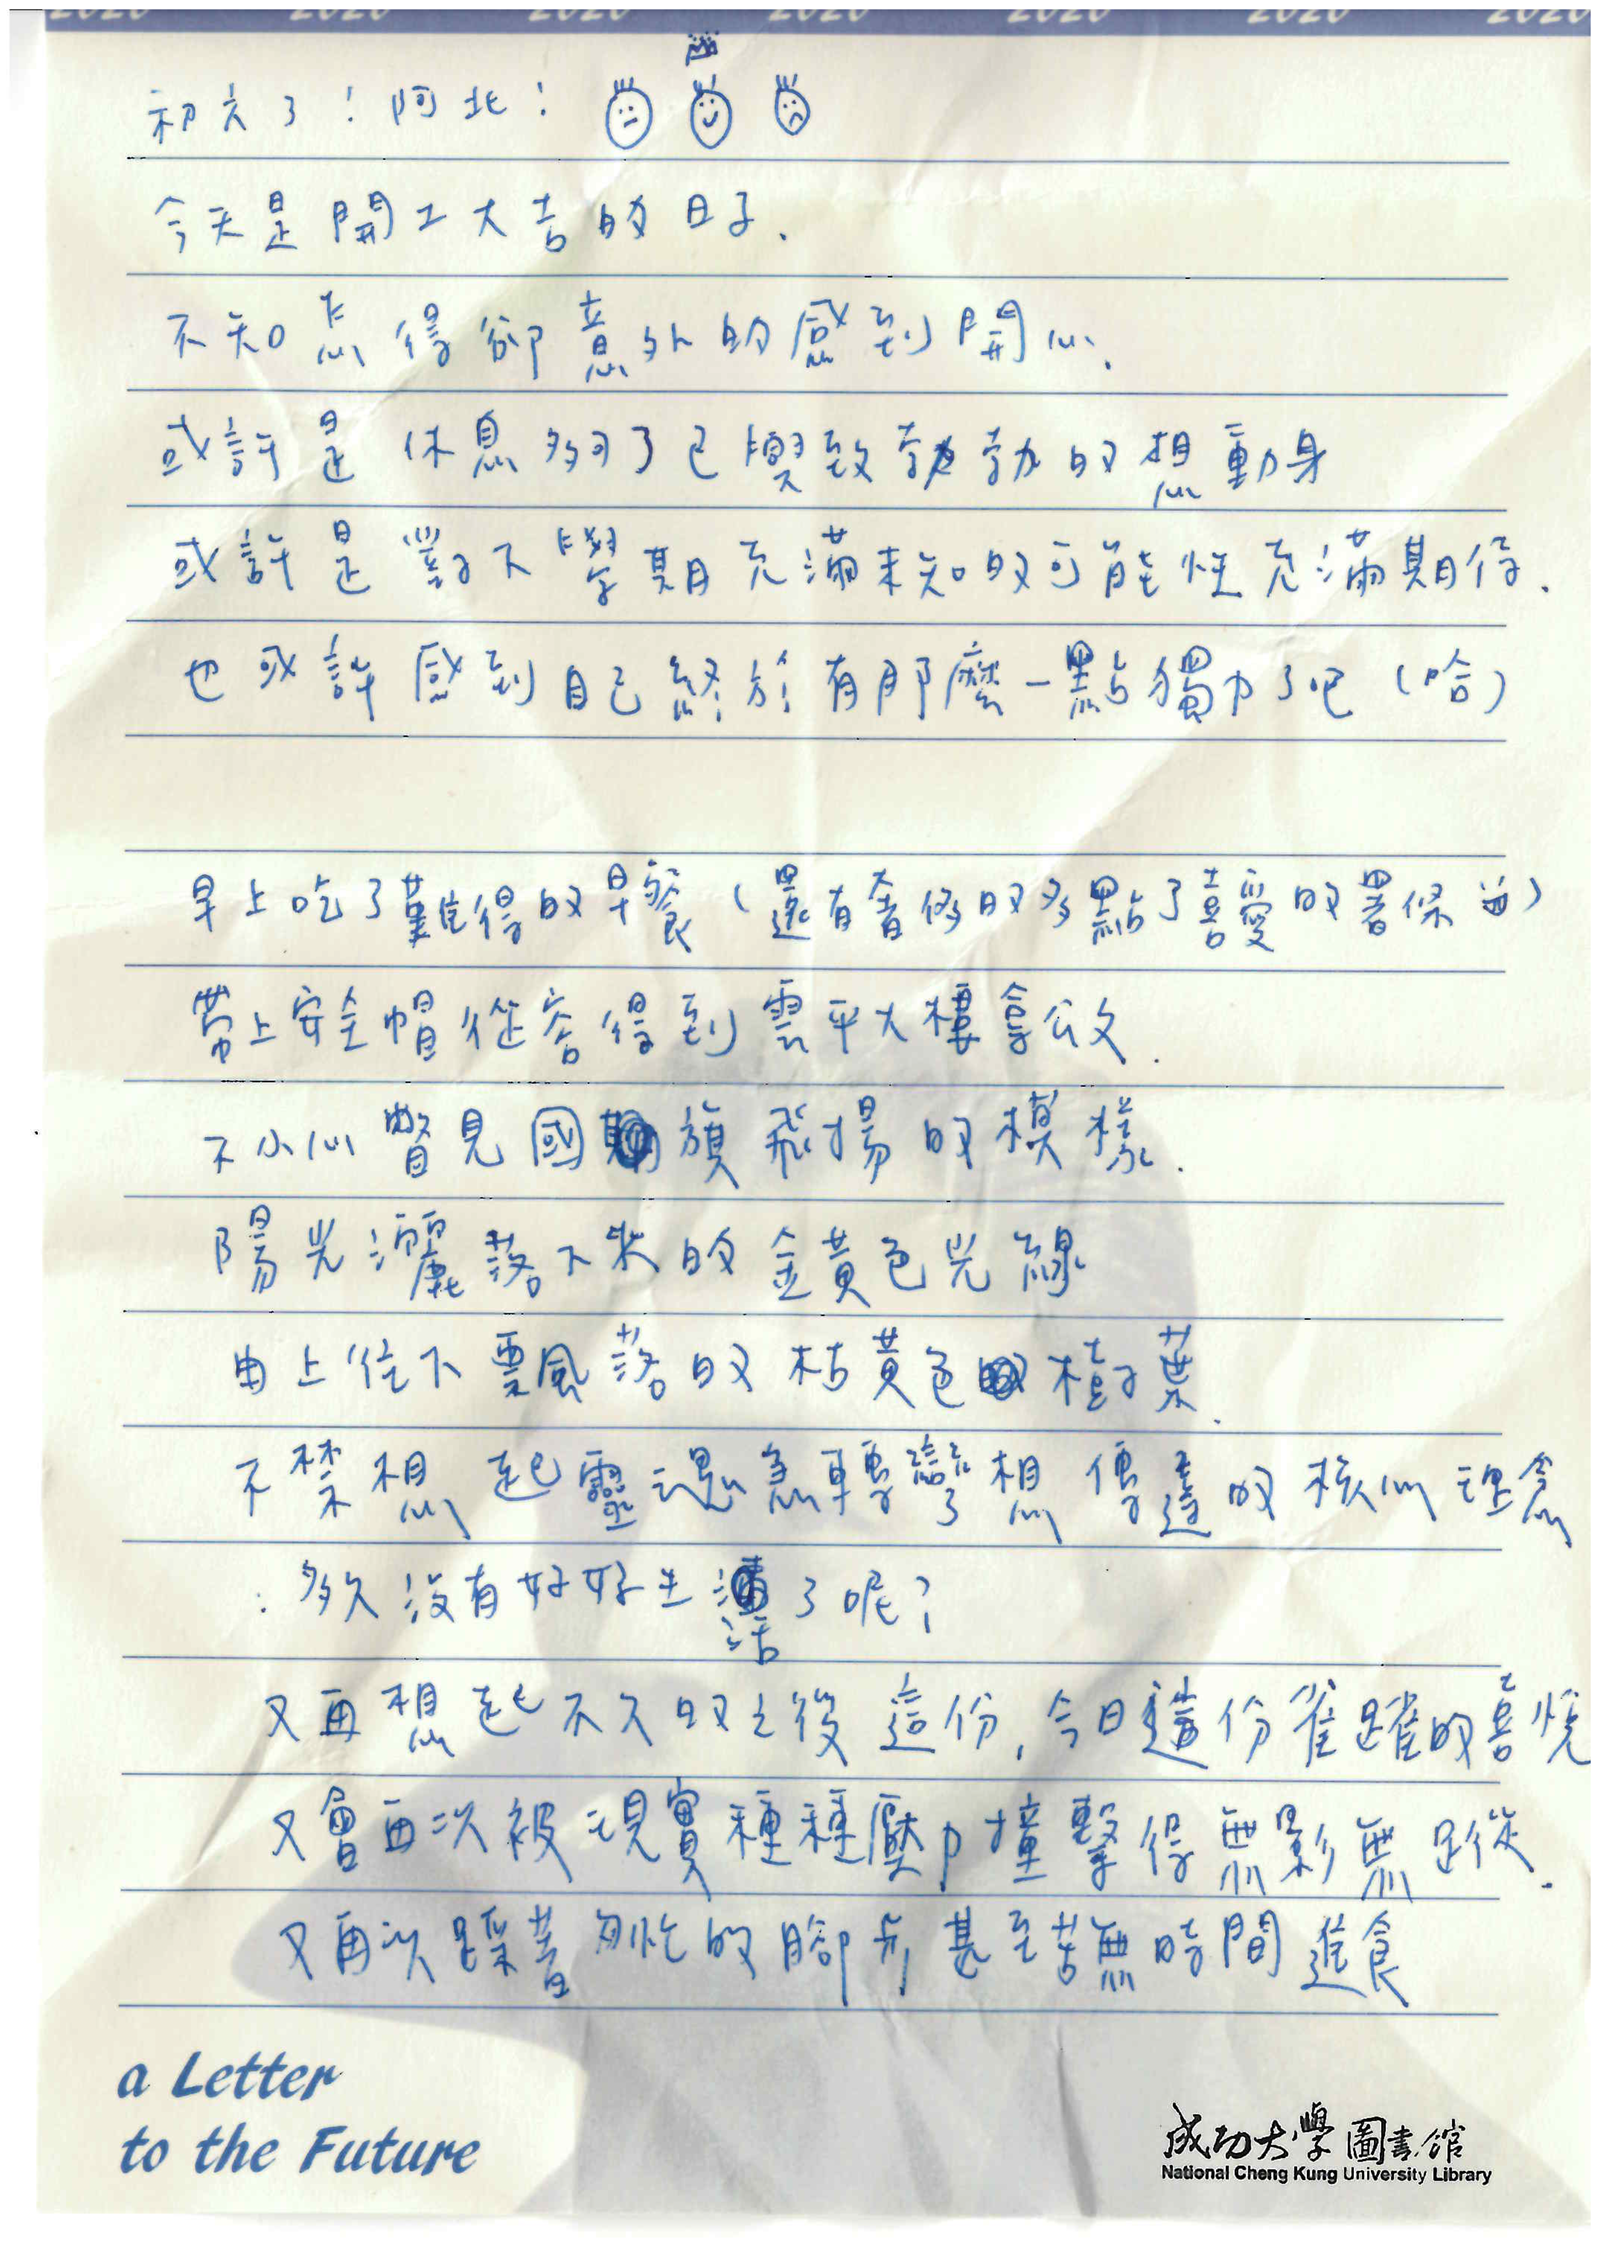 2020 2020 2020 2020 2020 2020 2020
初六了！阿北！
今天是開工大吉的日子.
不知怎得卻意外的感到開心.
或許是休息夠了已興致勃勃的想動身
或許是對下學期充滿未知的可能性充滿期待.
也或許感到自己終於有那麼一點獨力了吧（哈）
早上吃了難得的早餐（還有奢侈的多點了喜愛的薯條）
帶上安全帽從容得到雲平大樓拿公文.
不小心瞥見國旗飛揚的模樣.
陽光灑落下來的金黃色光線
由上往下飄落的枯黃色樹葉.
不禁想起靈魂急轉彎想傳達的核心理念
：多久沒有好好生活了呢？
又再想起不久的之後這份,今日這份雀躍的喜悅
又會再次被現實種種壓力撞擊得無影無蹤.
又再次踩著匆忙的腳步甚至苦無時間進食
a Letter
to the Future
成功大學圖書館
National Cheng Kung University Library